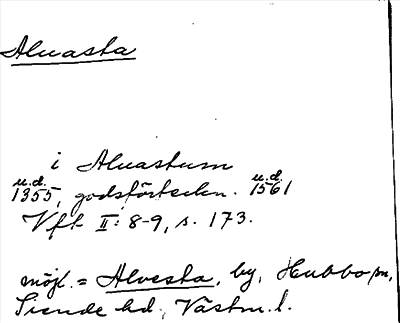 Aluasta
i Aluastum
u.d. u.d.
1355, godsförteckn. 1561
Vft II: 8-9, s. 173.
möjl. = Alvesta, by, Hubbo sn,
Siende hd, Västm. l.